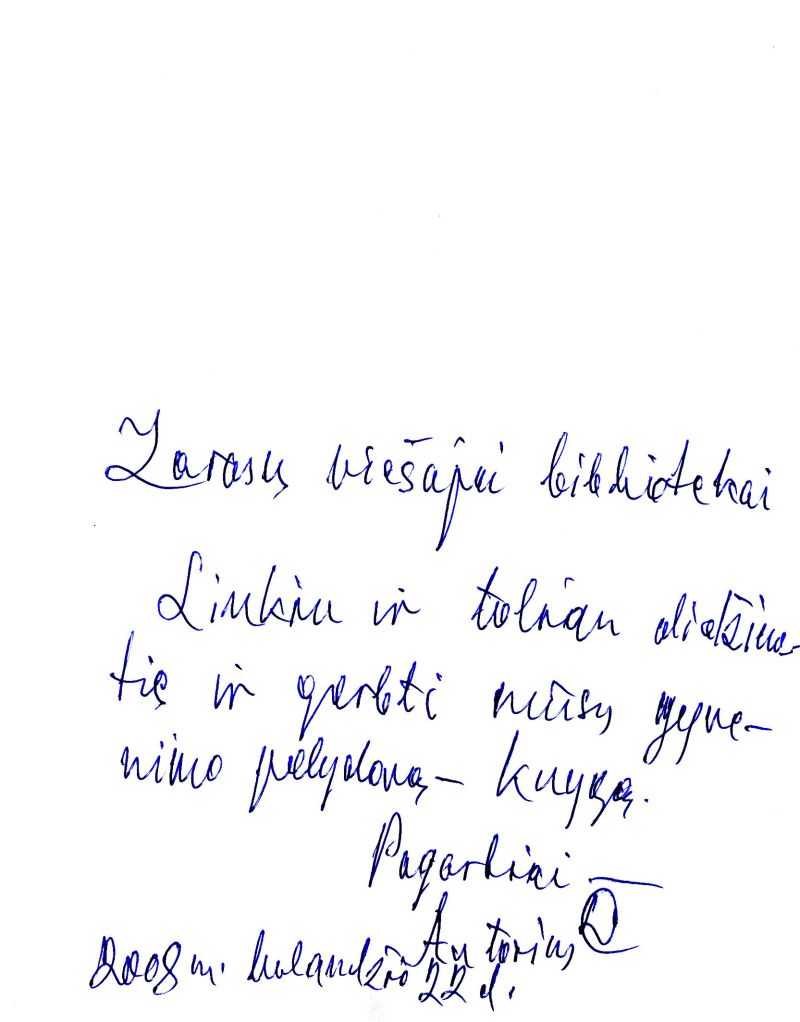 Zarasų viešajai bibliotekai
Linkiu ir toliau didžiuo-
tis ir gerbti mūsų gyve-
nimo palydovą – knygą.
Pagarbiai –
Autorius
2008 m. balandžio 22 d.